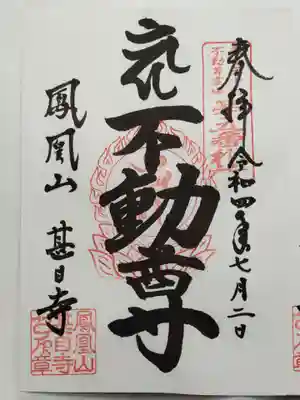 奉拝 令和四年七月二日
不動尊
鳳凰山 甚目寺
鳳凰山
甚目寺